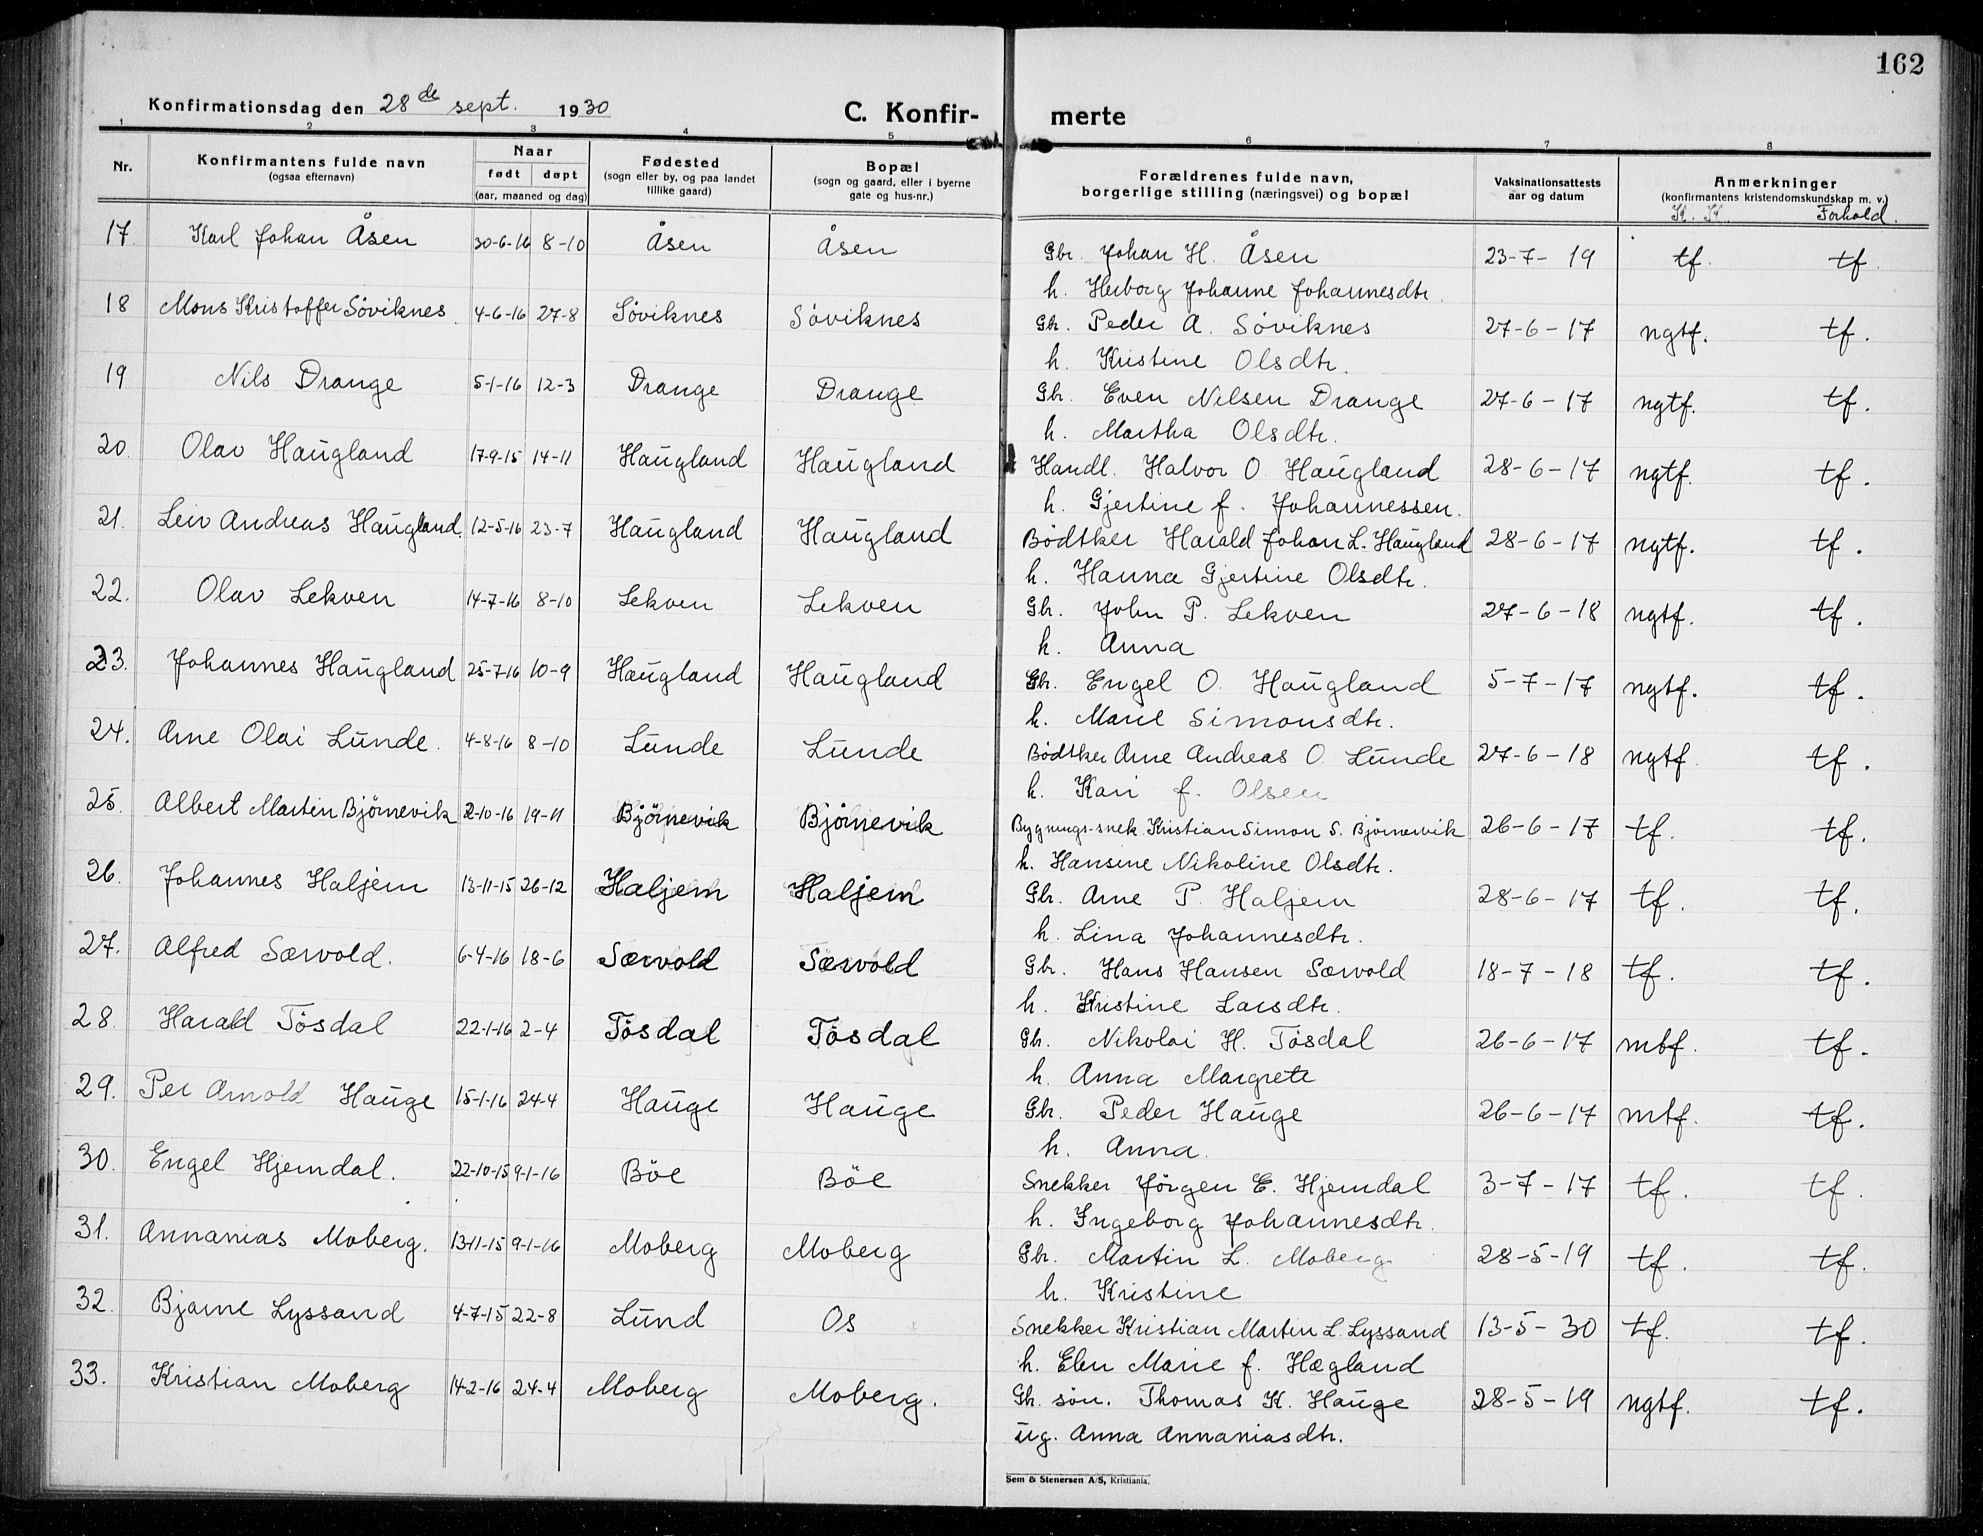 162
Konfirmationsdag den 28de sept. 1930 C. Konfir- merte
1 2 3 4 5 6 7 8
Nr. Konfirmantens fulde navn (ogsaa efternavn) Naar født døpt (aar, maaned og dag) Fødested (sogn eller by, og paa landet tillike gaard) Bopæl (sogn og gaard, eller i byerne gate og hus-nr.) Forældrenes fulde navn, borgerlige stilling (næringsvei) og bopæl Vaksinationsattests aar og datum Anmerkninger (konfirmantens kristendomskundskap m. v.)
K. K. Forhold.
17. Karl Johan Åsen 30-6-16 8-10 Åsen Åsen Gbr. Johan H. Åsen 23-7-19 tf. tf.
h. Herborg Johanne Johannesdtr.
18 Mons Kristoffer Søviknes. 4-6-16 27-8 Søviknes Søviknes Gbr. Peder A. Søviknes 27-6-17 ngtf. tf.
h. Kristine Olsdtr.
19 Nils Drange 5-1-16 12-3 Drange Drange Gbr. Even Nilsen Drange 27-6-17 ngtf. tf.
h. Martha Olsdtr.
20. Olav Haugland 17-9-15 14-11 Haugland Haugland Handl. Halvor O. Haugland 28-6-17 ngtf. tf.
h. Gjertine f. Johannessen.
21. Leiv Andreas Haugland. 12-5-16 23-7 Haugland Haugland Bødtker Harald Johan L. Haugland 28-6-17 ngtf. tf.
h. Hanna Gjertine Olsdtr.
22. Olav Lekven 14-7-16 8-10 Lekven Lekven Gbr. John P. Lekven 27-6-18 ngtf. tf.
h. Anna
23. Johannes Haugland 25-7-16 10-9 Haugland Haugland Gbr. Engel O. Haugland 5-7-17 ngtf. tf.
h. Marie Simonsdtr.
24. Arne Olai Lunde. 4-8-16 8-10 Lunde Lunde Bødtker Arne Andreas O. Lunde 27-6-18 ngtf. tf.
h. Kari f. Olsen
25. Albert Martin Bjørnevik 2-10-16 19-11 Bjørnevik Bjørnevik Bygnings-snek. Kristian Simon S. Bjørnevik 26-6-17 tf. tf.
h. Hansine Nikoline Olsdtr.
26. Johannes Haljem 13-11-15 26-12 Haljem Haljem Gbr. Arne P. Haljem 28-6-17 tf. tf.
h. Lina Johannesdtr.
27. Alfred Særvold. 6-4-16 18-6 Særvold Særvold Gbr. Hans Hansen Særvold 18-7-18 tf. tf.
h. Kristine Larsdtr.
28. Harald Tøsdal 22-1-16 2-4 Tøsdal Tøsdal Gbr. Nikolai H. Tøsdal 26-6-17 mtf. tf.
h. Anna Margrete
29. Per Arnold Hauge 15-1-16 24-4 Hauge Hauge Gbr. Peder Hauge 26-6-17 mtf. tf.
h. Anna.
30. Engel Hjemdal. 22-10-15 9-1-16 Bøe Bøe Snekker Jørgen E. Hjemdal 3-7-17 tf. tf.
h. Ingeborg Johannesdtr.
31. Annanias Moberg. 13-11-15 9-1-16 Moberg Moberg Gbr. Martin L. Moberg 28-5-19 tf. tf.
h. Kristine
32. Bjarne Lyssand 4-7-15 22-8 Lund Os Snekker Kristian Martin L. Lyssand 13-5-30 tf. tf.
h. Elen Marie f. Hægland
33. Kristian Moberg 14-2-16 24-4 Moberg Moberg. Gbr. søn. Thomas K. Hauge 28-5-19 ngtf. tf.
ug. Anna Annaniasdtr.
Sem & Stenersen A/S, Kristiania.